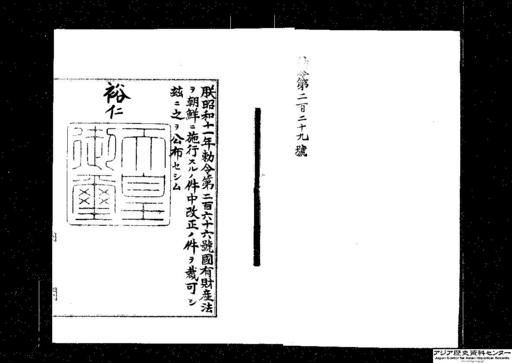 令第二百二十九號
朕昭和十一年勅令第二百六十六號國有財産法
ヲ朝鮮ニ施行スルノ件中改正ノ件ヲ裁可シ
玆ニ之ヲ公布セシム
裕仁
天皇
御璽
アジア歴史資料センター
Japan Center for Asian Historical Records